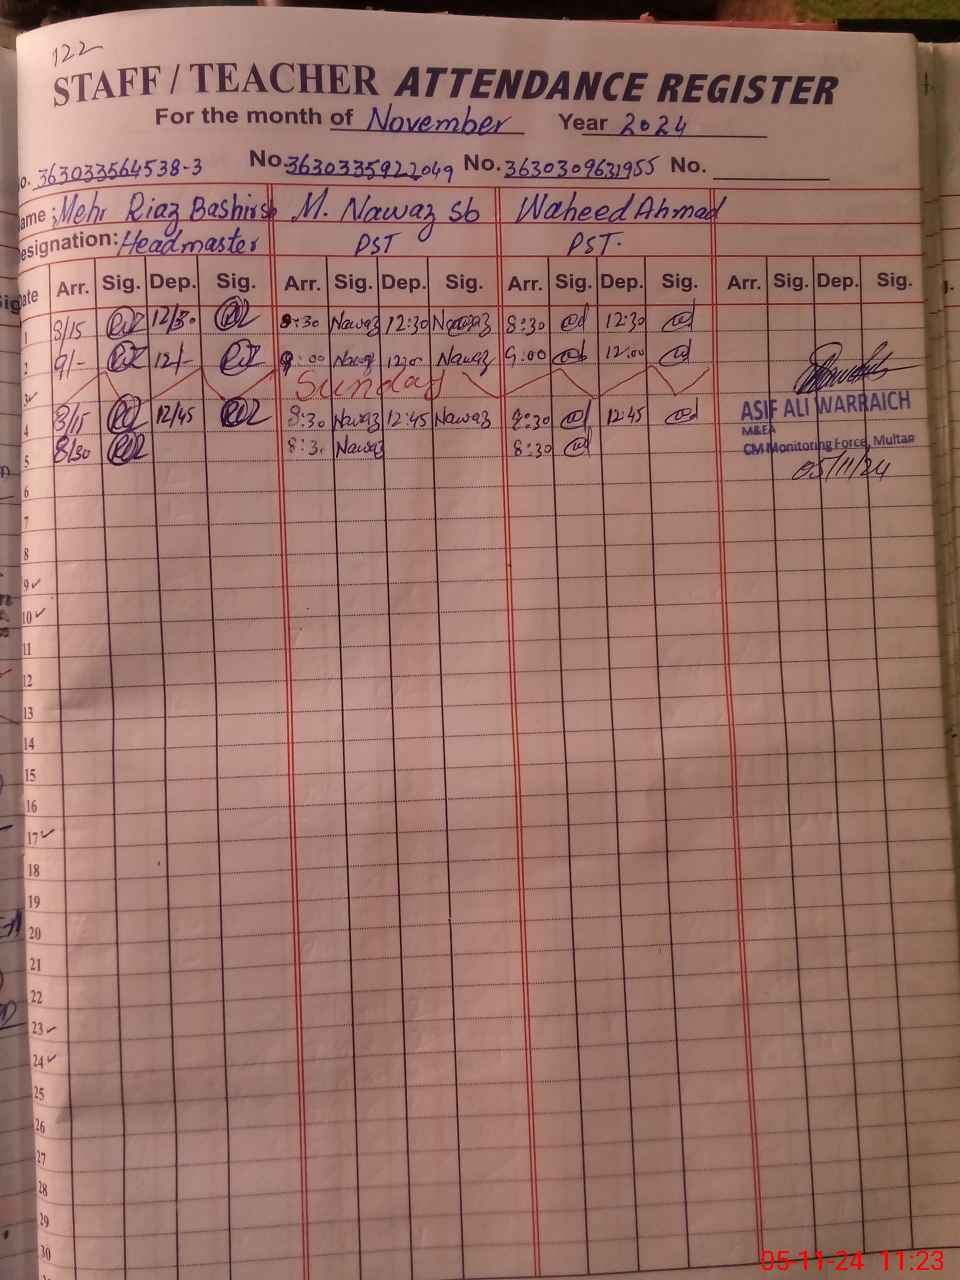 122
STAFF / TEACHER ATTENDANCE REGISTER
For the month of November Year 2024
o. 363033564538-3 No. 3630335922049 No. 3630309631955 No.
ame : Mehr Riaz Bashir sb M. Nawaz sb Waheed Ahmad
esignation: Headmaster PST PST.
ate Arr. Sig. Dep. Sig. Arr. Sig. Dep. Sig. Arr. Sig. Dep. Sig. Arr. Sig. Dep. Sig.
1 8/15 12/30 8:30 Nawaz 12:30 Nawaz 8:30 12:30
2 9/- 12/- 9:00 Nawaz 12:00 Nawaz 9:00 12:00
3 Sunday
4 8/15 12/45 8:30 Nawaz 12:45 Nawaz 8:30 12:45
ASIF ALI WARRAICH
M&EA
CM Monitoring Force, Multan
05/11/24
5 8/30 8:3. Nawaz 8:30
6
7
8
9
10
11
12
13
14
15
16
17
18
19
20
21
22
23
24
25
26
27
28
29
30
05-11-24 11:23